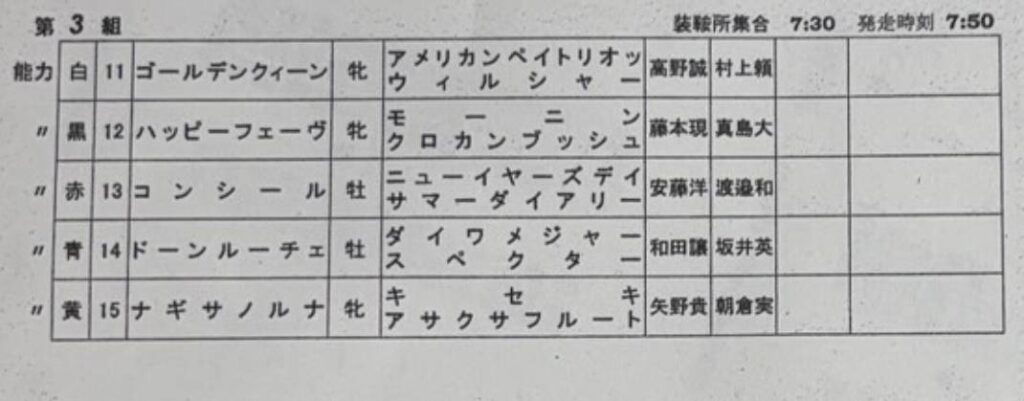 第 3 組 装鞍所集合 7:30 発走時刻 7:50
能力 白 11 ゴールデンクィーン 牝 アメリカンペイトリオッ ウィルシャー 高野誠 村上頼
〃 黒 12 ハッピーフェーヴ 牝 モーニン クロカンブッシュ 藤本現 真島大
〃 赤 13 コンシール 牡 ニューイヤーズデイ サマーダイアリー 安藤洋 渡邉和
〃 青 14 ドーンルーチェ 牡 ダイワメジャー スペクター 和田譲 坂井英
〃 黄 15 ナギサノルナ 牝 キセキ アサクサフルート 矢野貴 朝倉実